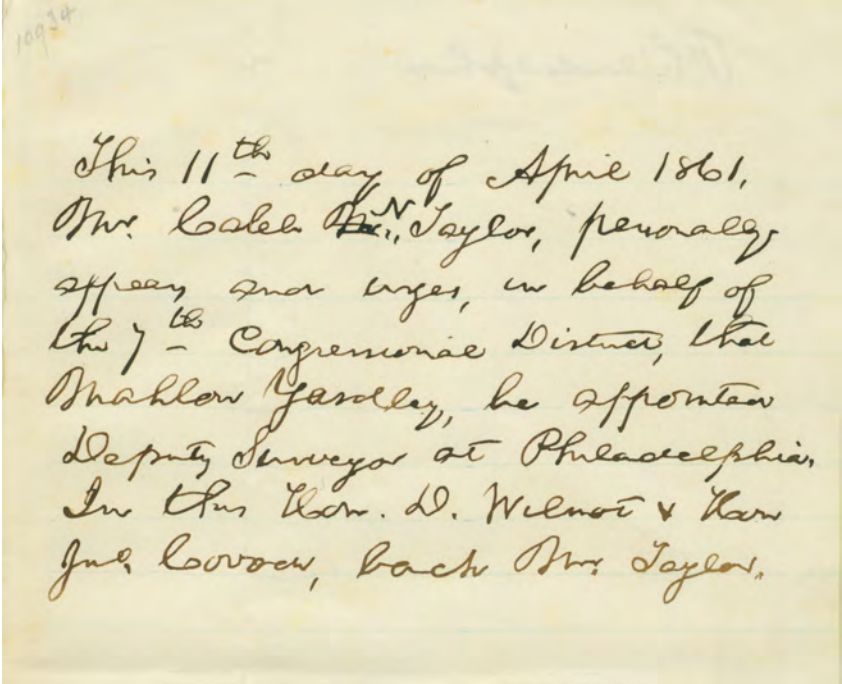 10934
This 11th day of April 1861,
Mr. Caleb N. Taylor, personally
appears and urges, in behalf of
the 7th Congressional District, that
Mahlon Yardley, be appointed
Deputy Surveyor at Philadelphia.
In this Hon. D. Wilmot & Hon
Jno. Covode, back Mr. Taylor.